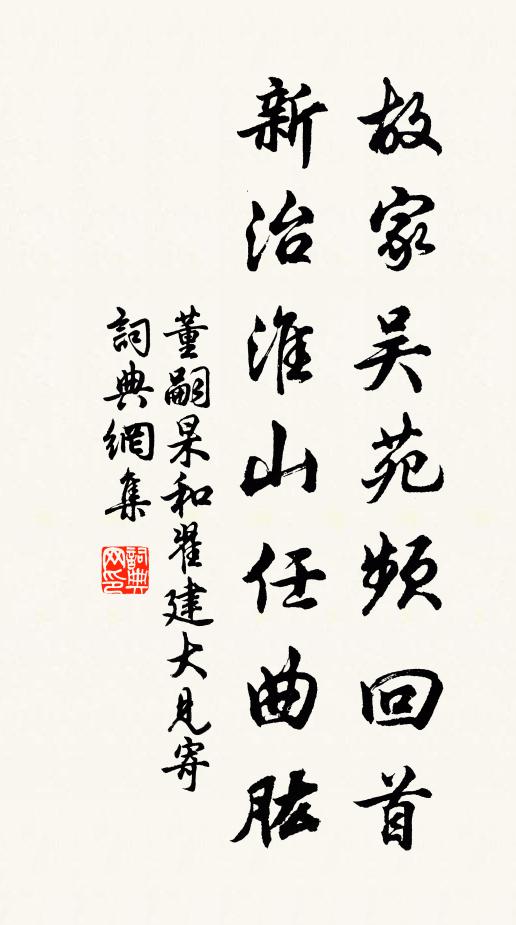 故家吴苑频回首
新治淮山任曲肱
董嗣杲和翟建大見寄
詞典網集
詞典网印